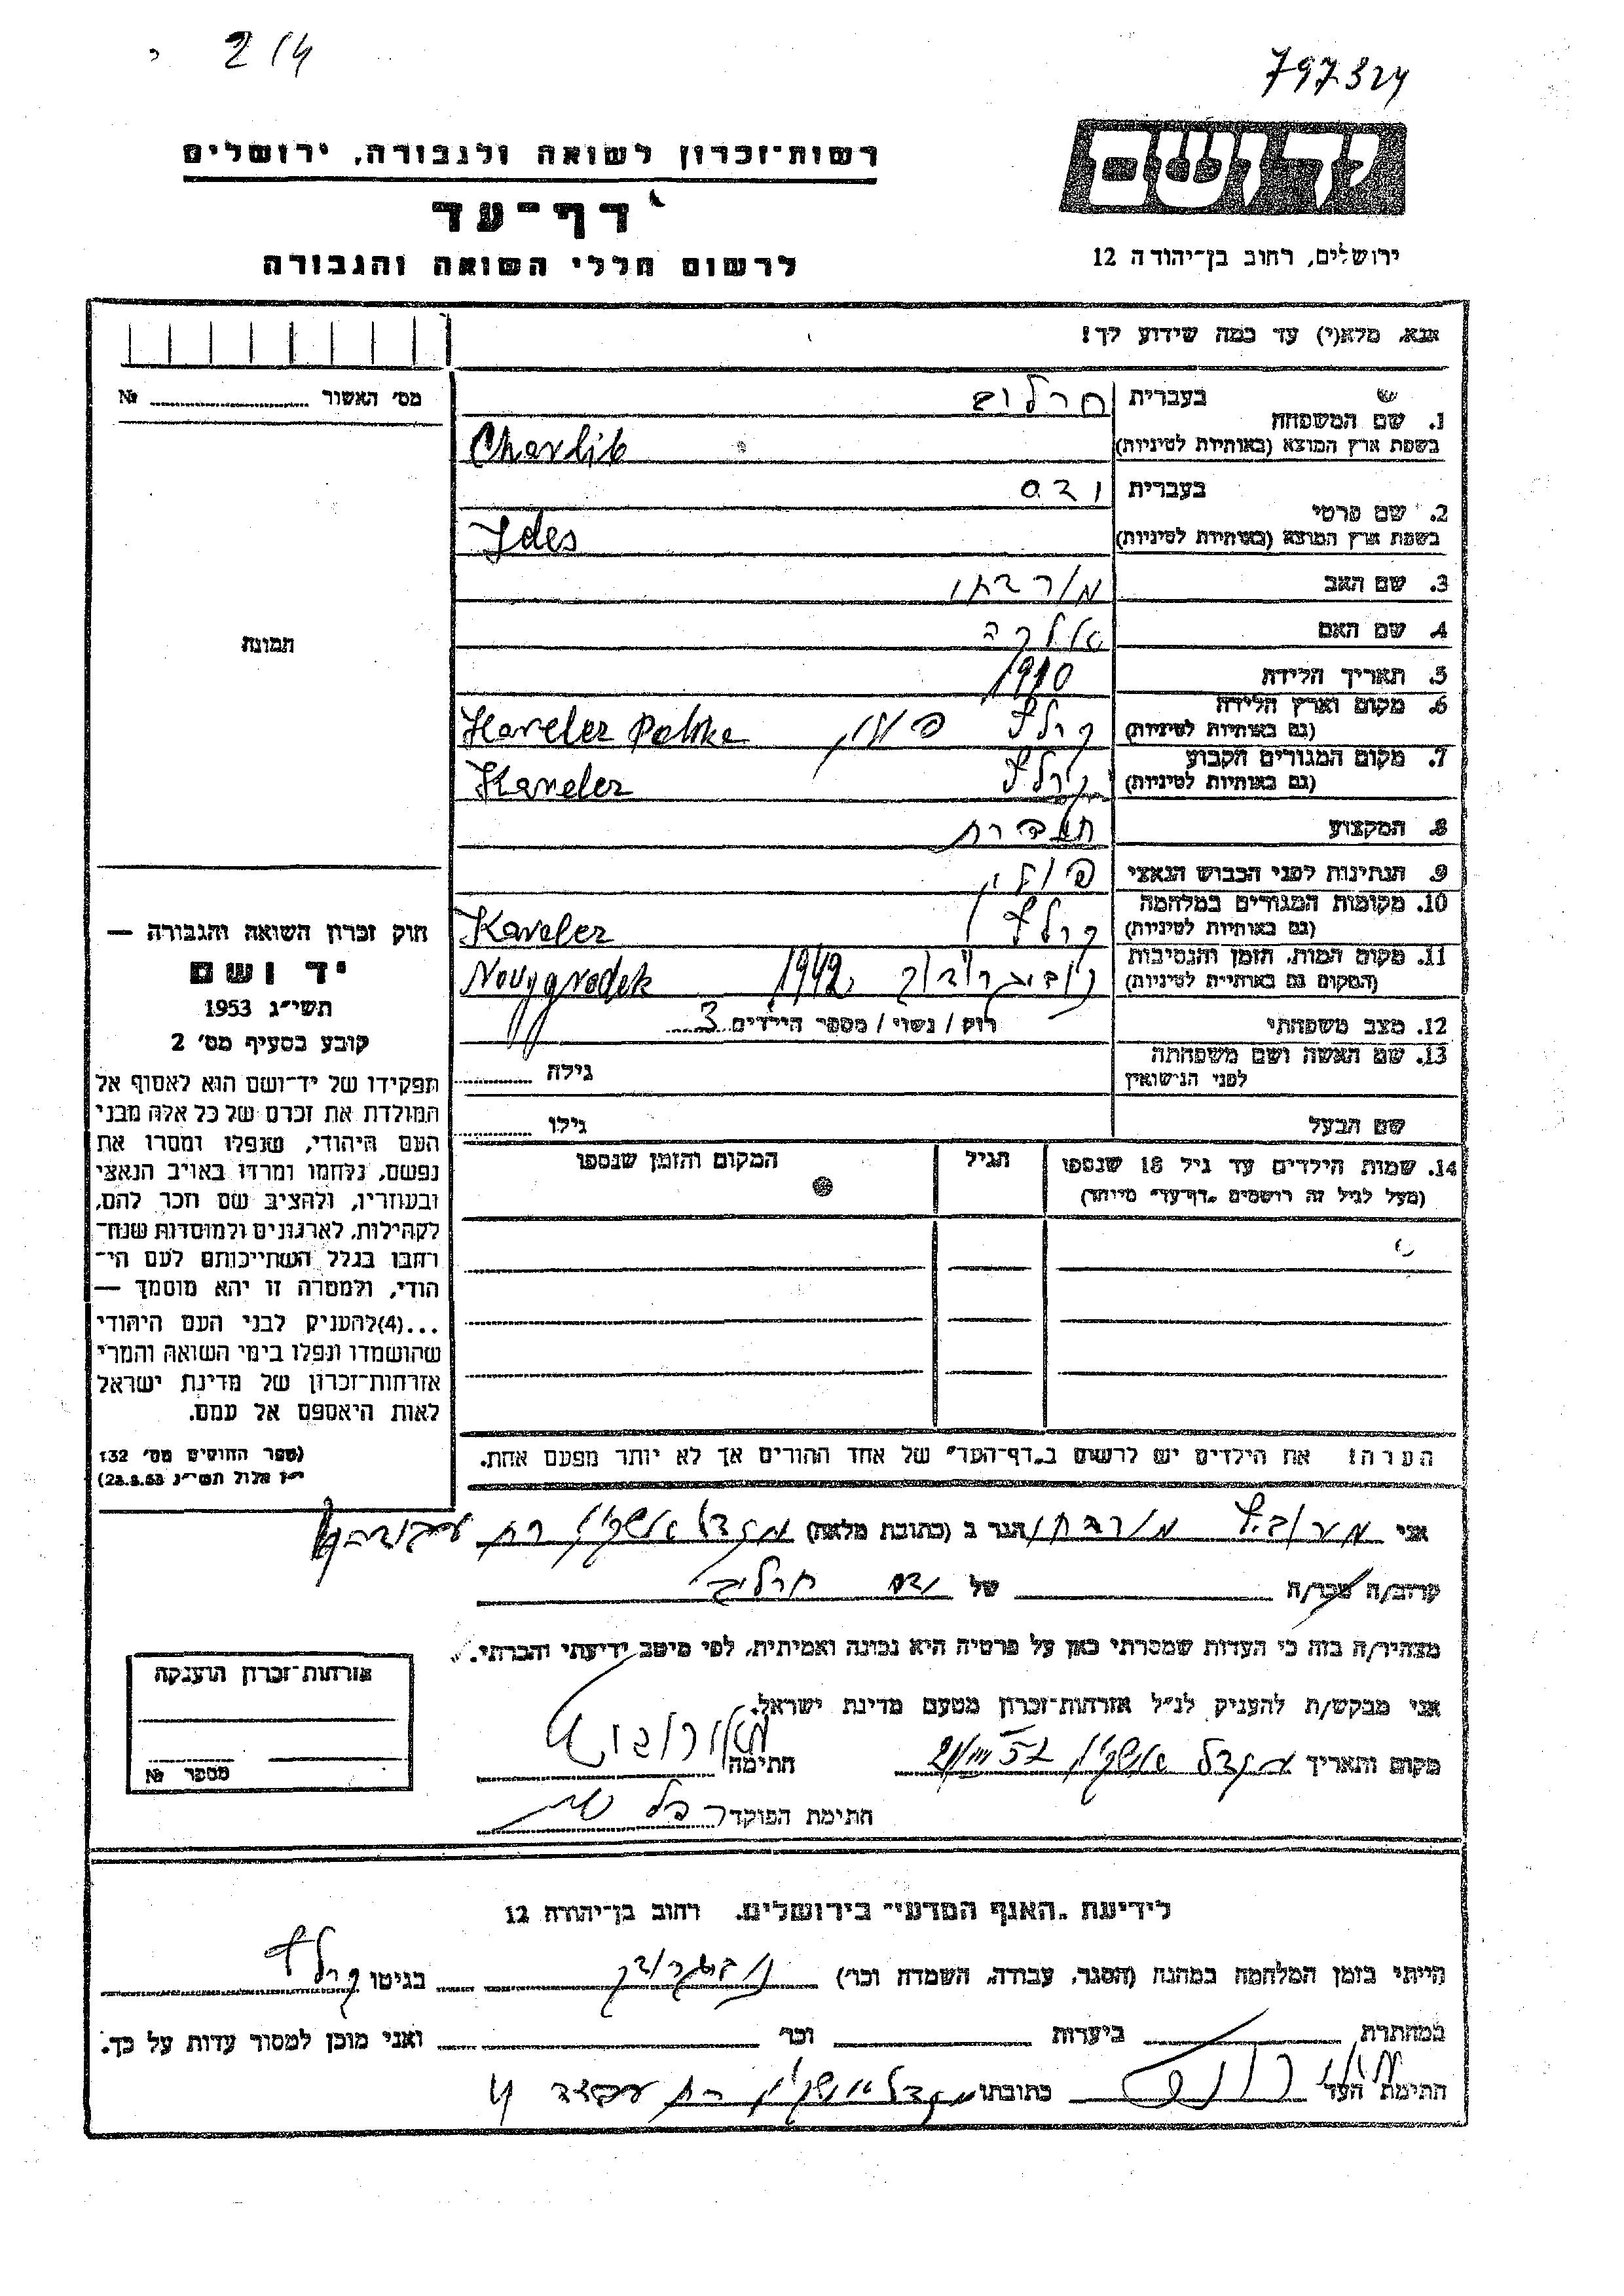 2/4
797324
ידושם
ירושלים, רחוב בן־יהודה 12
רשות־זכרון לשואה ולגבורה, ירושלים
דף־עד
לרשום חללי השואה והגבורה
אנא, מלא(י) עד כמה שידוע לך!
מס' האשור № 
1. שם המשפחה
בעברית
בשפת ארץ המוצא (באותיות לטיניות) Charlib
2. שם פרטי
בעברית
בשפת ארץ המוצא (באותיות לטיניות) Ides
3. שם האב
4. שם האם
5. תאריך הלידה 1910
6. מקום וארץ הלידה
(גם באותיות לטיניות) קרליץ פולין Kareler Polska
7. מקום המגורים הקבוע
(גם באותיות לטיניות) קרליץ Kareler
8. המקצוע תופרת
9. הנתינות לפני הכבוש הנאצי פולין
10. מקומות המגורים במלחמה
(גם באותיות לטיניות) קרליץ Kareler
11. מקום המות, הזמן והנסיבות
(המקום גם באותיות לטיניות) 1942 Nouygrodek
12. מצב משפחתי רוק / נשוי / מספר הילדים 3
13. שם האשה ושם משפחתה
לפני הנישואין גילה
שם הבעל גילו
14. שמות הילדים עד גיל 18 שנספו
(מעל לגיל זה רושמים "דף־עד" מיוחד)
הגיל
המקום והזמן שנספו
הערה: את הילדים יש לרשום ב"דף־העד" של אחד ההורים אך לא יותר מפעם אחת.
תמונה
חוק זכרון השואה והגבורה —
יד ושם
תשי"ג 1953
קובע בסעיף מס' 2
תפקידו של יד־ושם הוא לאסוף אל
המולדת את זכרם של כל אלה מבני
העם היהודי, שנפלו ומסרו את
נפשם, נלחמו ומרדו באויב הנאצי
ובעוזריו, ולהציב שם וזכר להם,
לקהילות, לארגונים ולמוסדות שנח־
רבו בגלל השתייכותם לעם הי־
הודי, ולמטרה זו יהא מוסמך —
...(4)להעניק לבני העם היהודי
שהושמדו ונפלו בימי השואה והמרי
אזרחות־זכרון של מדינת ישראל
לאות היאספם אל עמם.
(ספר החוקים מס' 132
י"ז אלול תשי"ג 28.8.53)
אני מרדכי הגר ב (כתובת מלאה) מגדל אשקלון
קרוב/ה מכר/ה של חרליב
מצהיר/ה בזה כי העדות שמסרתי כאן על פרטיה היא נכונה ואמיתית, לפי מיטב ידיעתי והכרתי.
אני מבקש/ת להעניק לנ"ל אזרחות־זכרון מטעם מדינת ישראל.
מקום ותאריך מגדל אשקלון חתימה
חתימת הפוקד
אזרחות־זכרון הוענקה
מספר №
לידיעת "האגף המדעי" בירושלים, רחוב בן־יהודה 12
הייתי בזמן המלחמה במחנה (הסגר, עבודה, השמדה וכו') בגיטו קרליץ
במחתרת ביערות וכו' ואני מוכן למסור עדות על כך.
חתימת העד כתובתו מגדל אשקלון